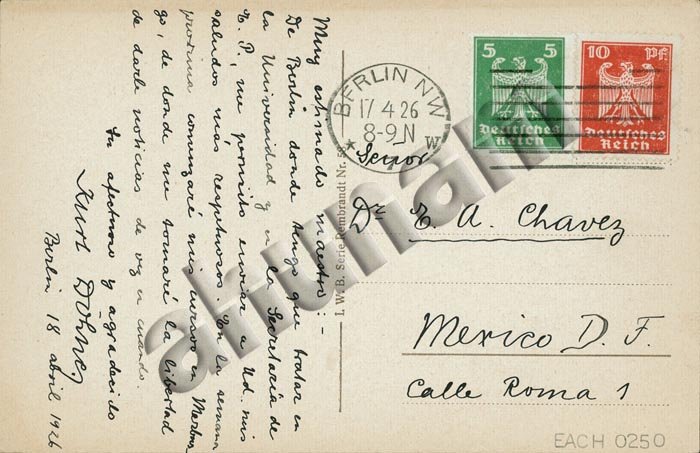 Muy estimado maestro: -
De Berlin donde tengo que tratar en
la Universidad y en la Secretaría de
E. P., me permito enviar a Ud. mis
saludos más respetuosos. En la semana
proxima comenzaré mis cursos en
go, de donde me tomaré la libertad
de darle noticias de vez en cuando.
Su afectuoso y agradecido
Kurt
Berlin 18 abril 1926
I. W. B. Serie Rembrandt Nr. 58
BERLIN NW
17 4 26
8-9 N
W
5 5
Deutsches
Reich
10 Pf
Deutsches
Reich
Señor
Dr. E. A. Chavez
Mexico D. F.
Calle Roma 1
EACH 0250
ahunam